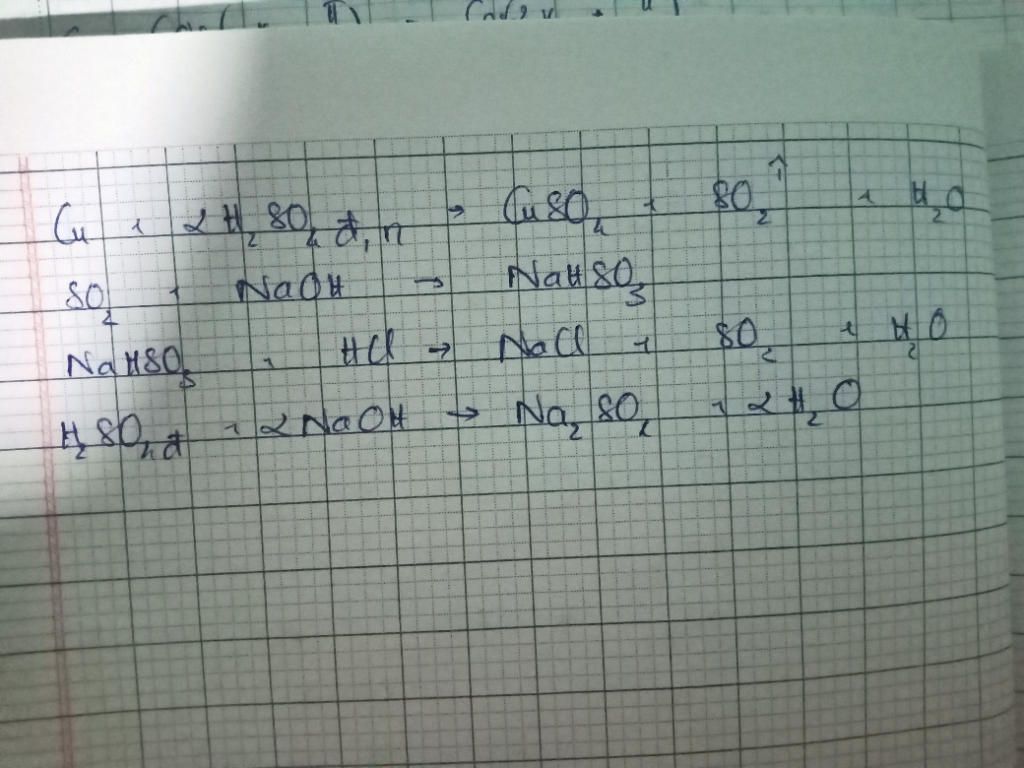 Cu + 2H₂SO₄ đ,n → CuSO₄ + SO₂↑ + H₂O
SO₂ + NaOH → NaHSO₃
NaHSO₃ + HCl → NaCl + SO₂ + H₂O
H₂SO₄ đ + 2NaOH → Na₂SO₄ + 2H₂O